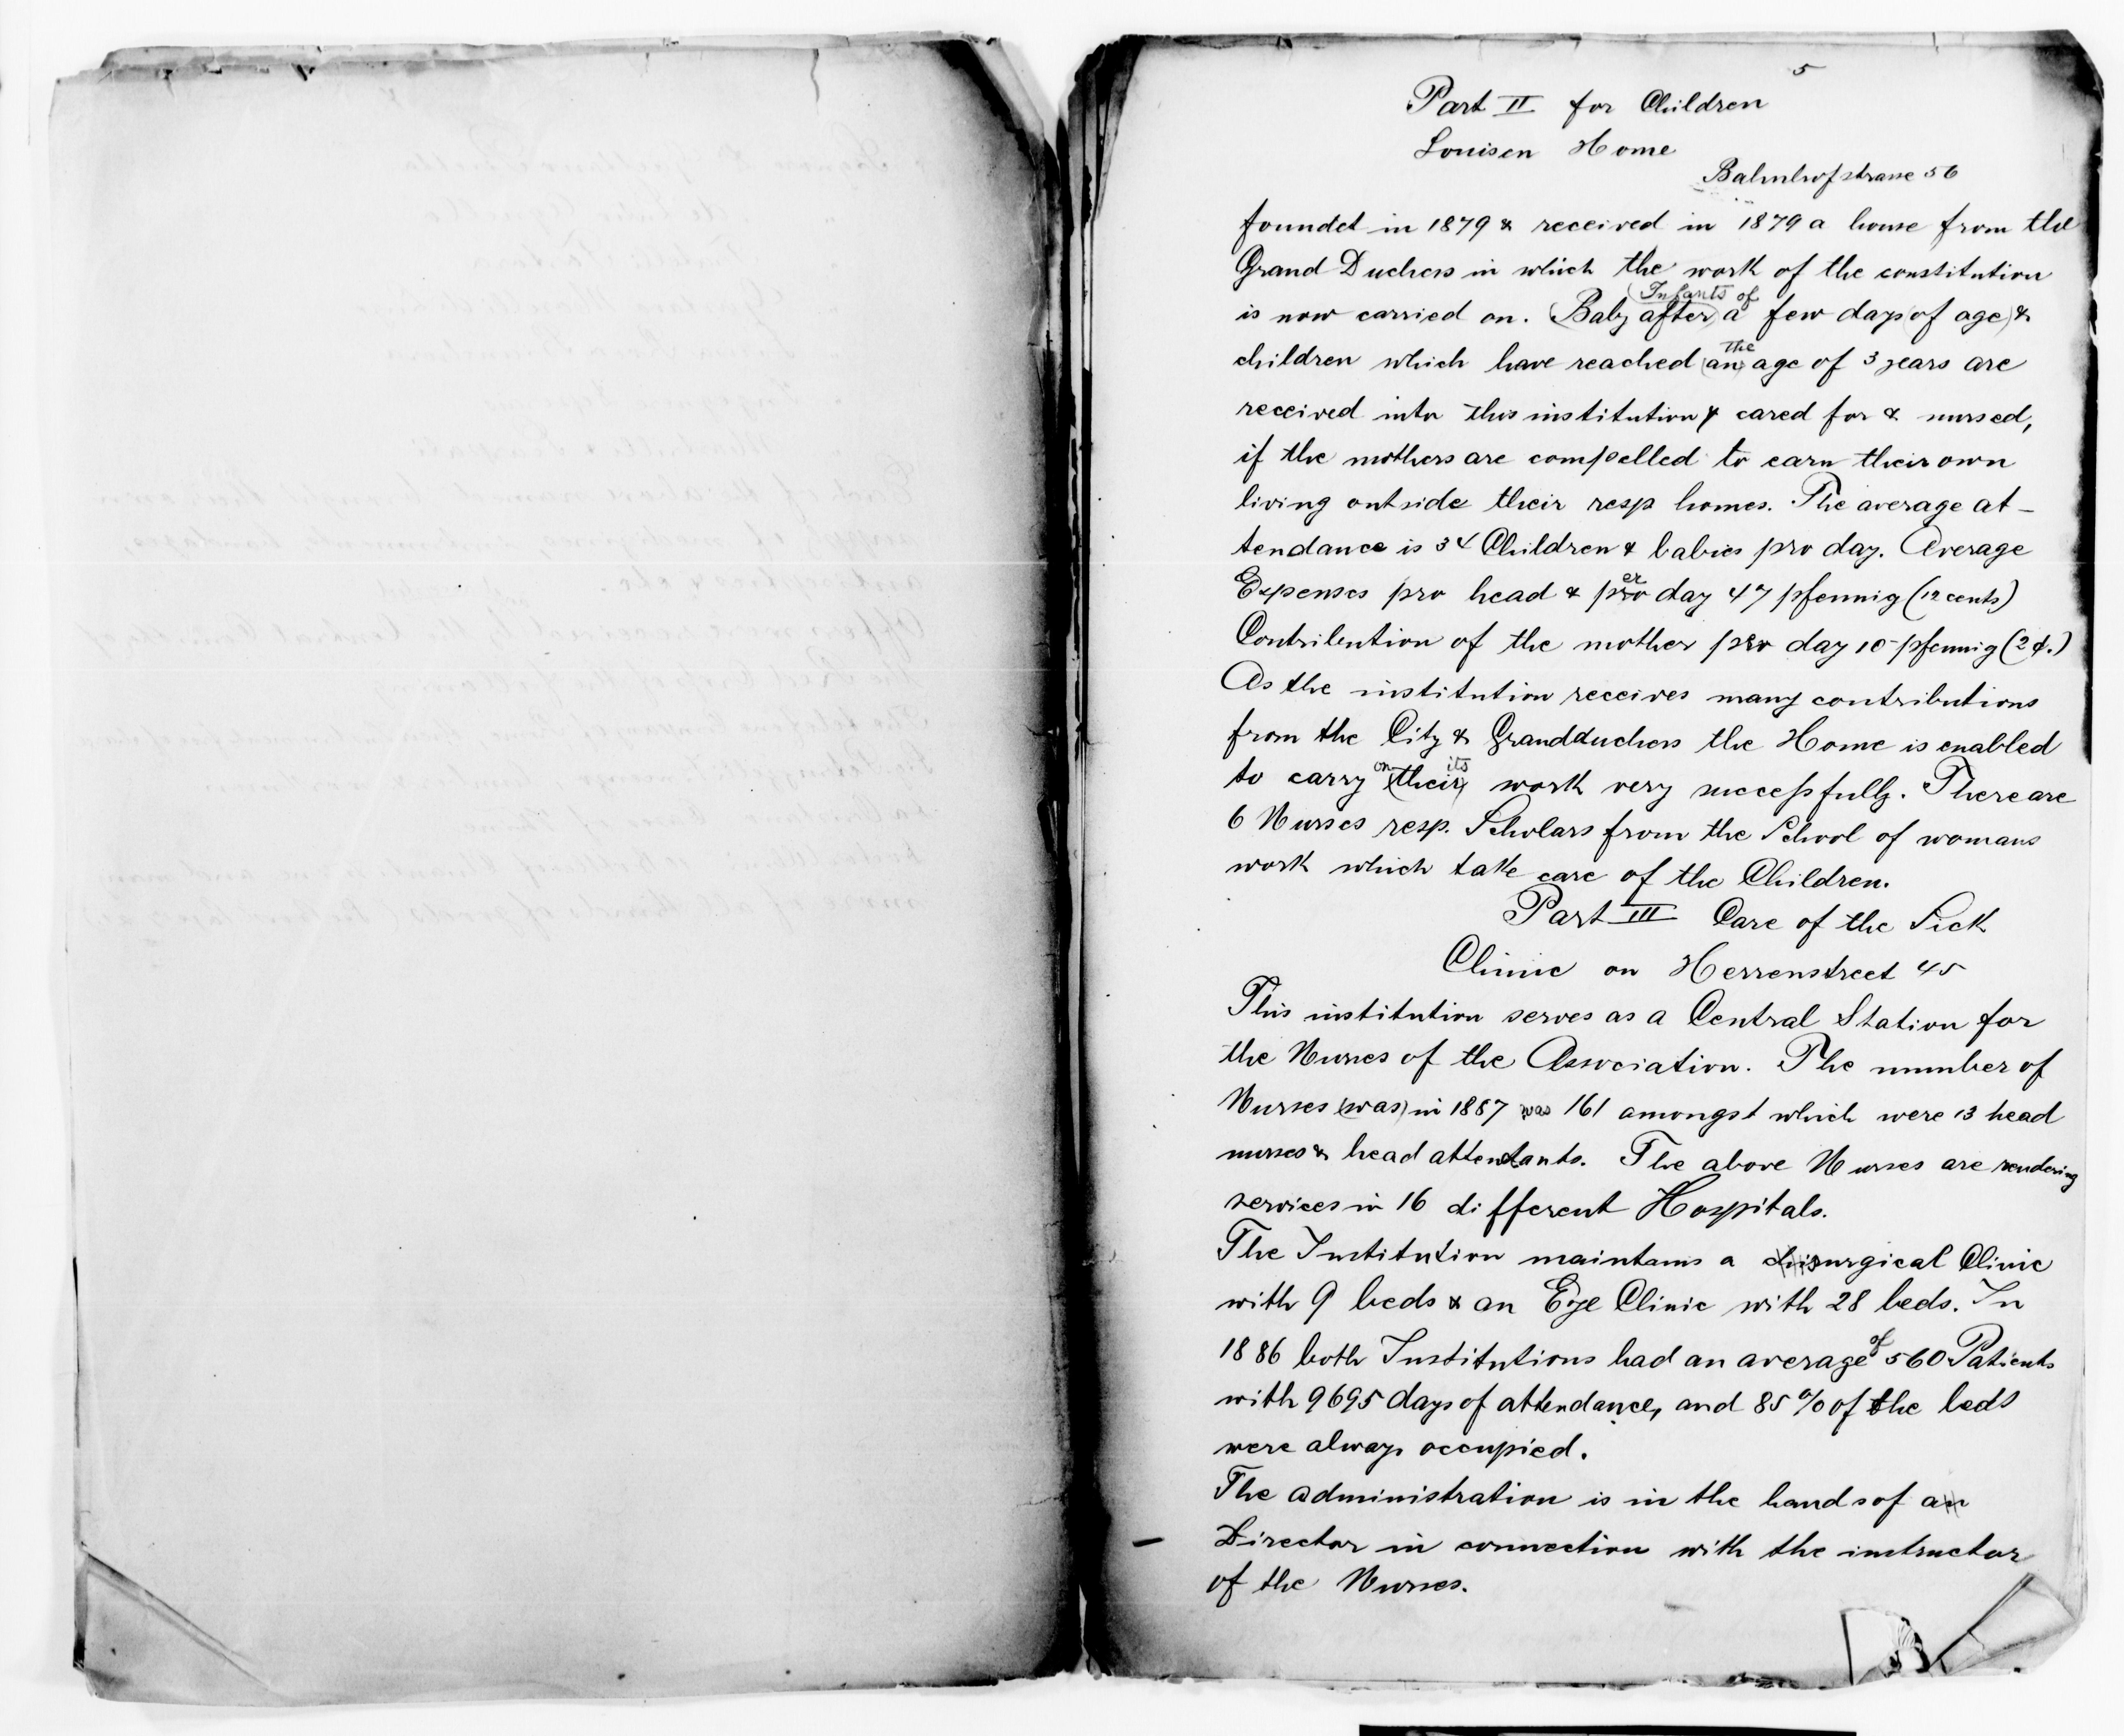 5
Part II for Children
Louisen Home
Bahnhofstrasse 56
foundet in 1879 & received in 1879 a house from the
Grand Duchess in which the work of the constitution
Infants of
is now carried on. (Baby after) a few days (of age) &
the
children which have reached (an) age of 3 years are
received into this institution & cared for & nursed,
if the mothers are compelled to earn their own
living outside their resp homes. The average at-
tendance is 34 Children & babies pro day. Average
er
Expenses pro head & pro day 47 pfennig (12 cents)
Contribution of the mother pro day 10 pfennig (2 ¢.)
As the institution receives many contributions
from the City & Grandduchess the Home is enabled
on its
to carry (their) work very successfully. There are
6 Nurses resp. Scholars from the School of womans
work which take care of the Children.
Part III Care of the Sick
Clinic on Herrenstreet 45
This institution serves as a Central Station for
the Nurses of the Association. The number of
Nurses (was) in 1887 was 161 amongst which were 13 head
nurses & head attendants. The above Nurses are rendering
services in 16 different Hospitals.
The Institution maintains a surgical Clinic
with 9 beds & an Eye Clinic with 28 beds. In
of
1886 both Institutions had an average 560 Patients
with 9695 days of attendance, and 85 % of the beds
were always occupied.
The administration is in the hands of an
Director in connection with the instructor
of the Nurses.